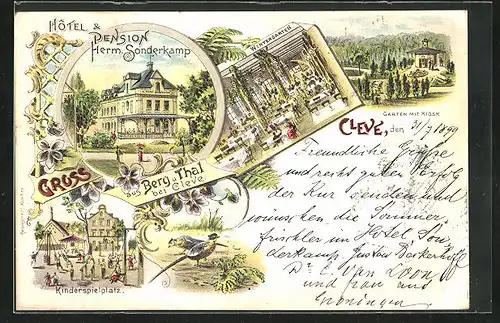 HÔTEL &
PENSION
Herm. Sonderkamp
WINTERGARTEN
GARTEN MIT KIOSK
CLEVE, den 31/7 1899
GRUSS
aus Berg u. Thal
bei Cleve
Kinderspielplatz.
Freundliche Grüsse
und recht guten Erfolg
der Kur senden und
wünschen die Sommer
frischler im Hotel Son
derkamp
Dr. C. Van Loon
und frau aus
Groningen